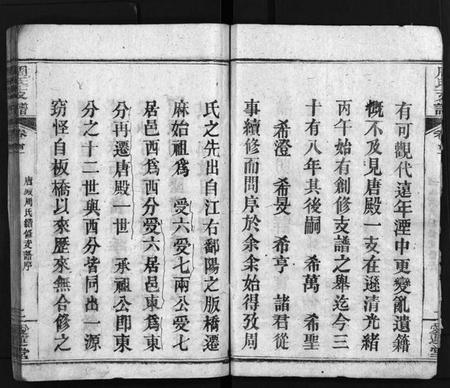 有可觀代遠年湮中更變亂遺籍
慨不及見唐殿一支在遜清光緒
丙午始有創修支譜之舉迄今三
十有八年其後嗣 希萬 希聖
希澄 希旻 希亨 諸君從
事續修而問序於余余始得攷周
氏之先出自江右鄱陽之版橋遷
麻始祖爲 受六愛七兩公愛七
居邑西爲西分愛六居邑東爲東
分再遷唐殿一世 承祖公卽東
分之十二世與西分皆同出一源
竊怪自板橋以來歷來無合修之
唐殿周氏續修支譜序